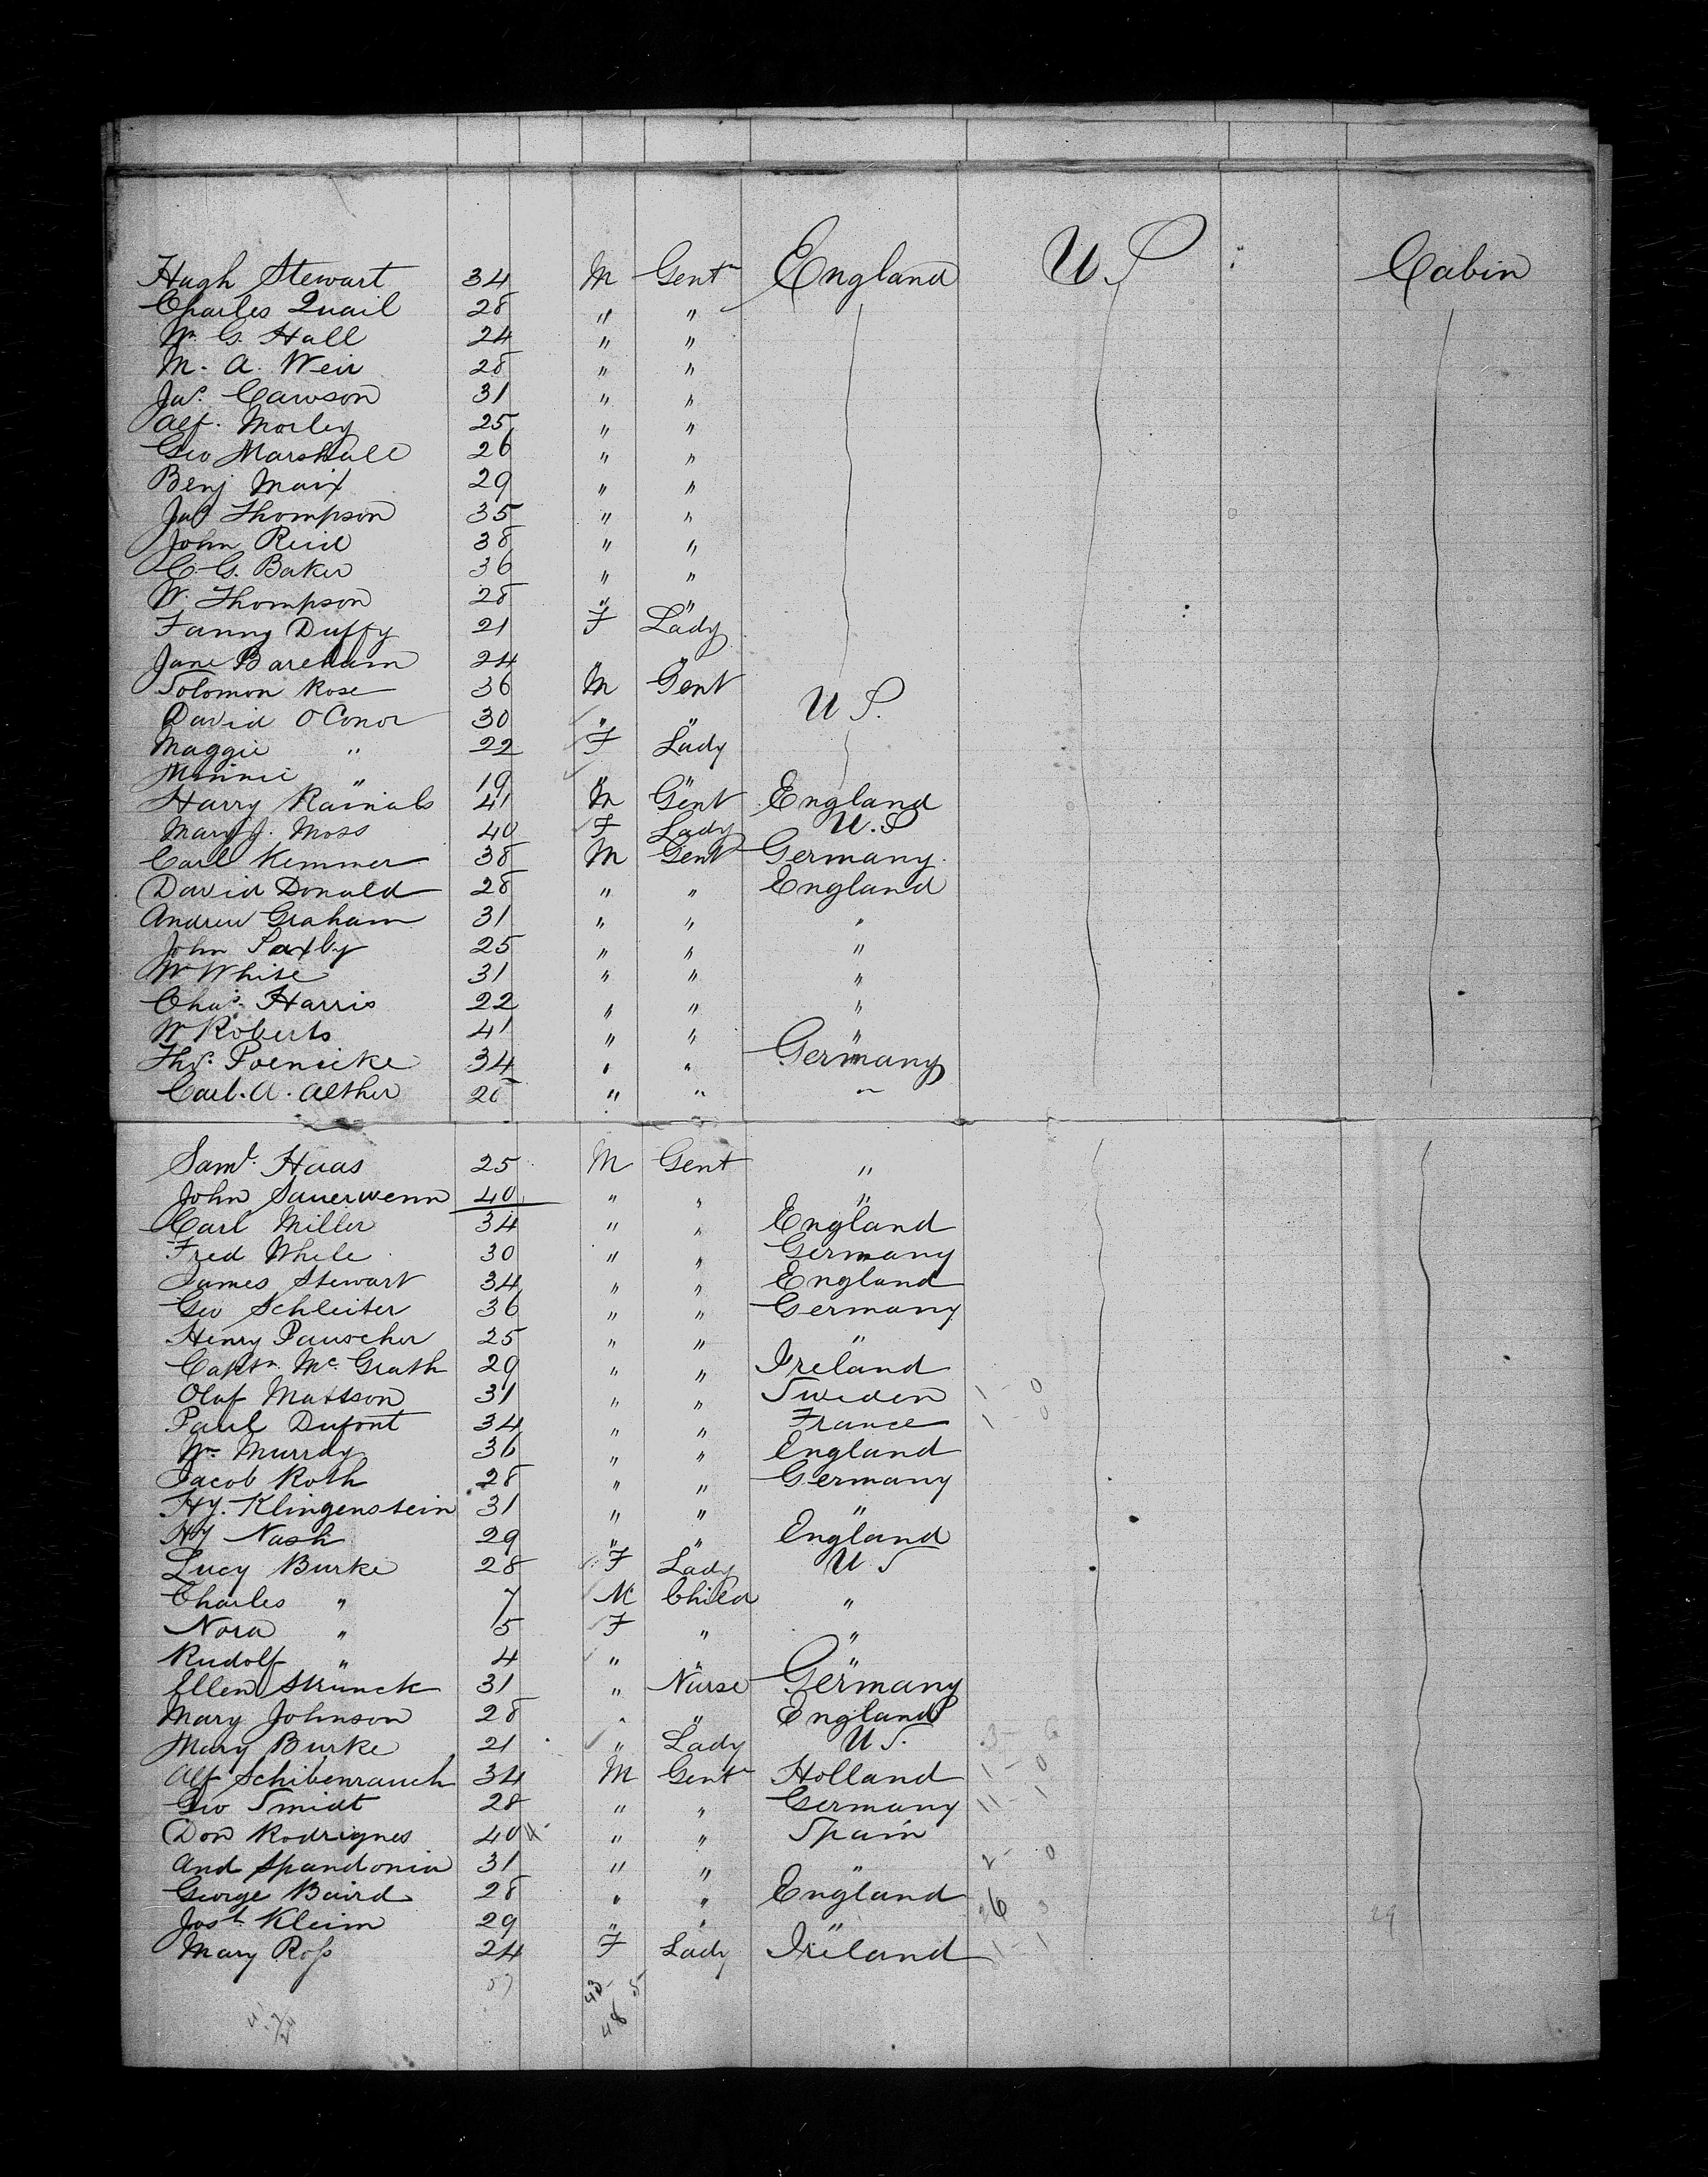 Hugh Stewart 34 M Gent England U.S Cabin
Charles Quail 28 " "
Wm G. Hall 24 " "
M. A. Weir 28 " "
Jas. Cawson 31 " "
Alf. Morley 25 " "
Geo Marshall 26 " "
Benj Maix 29 " "
Jas Thompson 35 " "
John Reid 38 " "
C. G. Baker 36 " "
W. Thompson 28 " "
Fanny Duffy 21 F Lady
Jane Bareham 24 " "
Solomon Rose 36 M Gent U S.
David O'Conor 30 " "
Maggie " 22 F Lady
Minnie " 19 " "
Harry Rainals 41 M Gent England
Mary J. Moss 40 F Lady U.S
Carl Kemmer 38 M Gent Germany
David Donald 28 " " England
Andrew Graham 31 " " "
John Saxby 25 " " "
W White 31 " " "
Chas. Harris 22 " " "
W Roberts 41 " " "
Ths. Poenicke 34 " " Germany
Carl. A. Alther 28 " " "
Saml. Haas 25 M Gent "
John Sauerwenn 40 " " "
Carl Miller 34 " " England
Fred While 30 " " Germany
James Stewart 34 " " England
Geo Schleiter 36 " " Germany
Henry Pauscher 25 " " "
Captn. Mc Grath 29 " " Ireland
Olaf Mattson 31 " " Sweden 1 - 0
Paul Dufont 34 " " France 1 - 0
Wm Murray 36 " " England
Jacob Roth 28 " " Germany
Hy. Klingenstein 31 " " "
Hy Nash 29 " " England
Lucy Burke 28 F Lady U S
Charles " 7 M Child "
Nora " 5 F " "
Rudolf " 4 " " "
Ellen Strunck 31 " Nurse Germany
Mary Johnson 28 " " England
Mary Burke 21 " Lady U S. 3 - 6
Alf Schibenrauch 34 M Gent Holland 1 - 0
Geo Smidt 28 " " Germany 11 - 1
Don Rodrignes 40 " " Spain
And Spandonia 31 " " " 2 - 0
George Baird 28 " " England 6 3
Josh Kleim 29 " " " 29
Mary Ross 24 F Lady Ireland 1 - 1
57 43 5
48